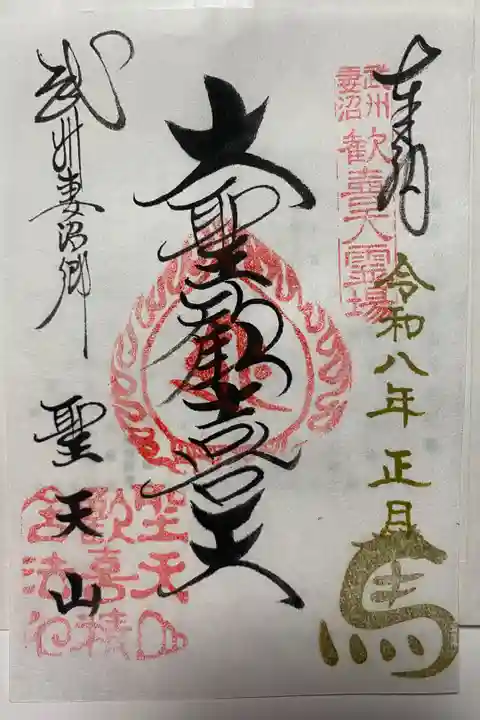 奉納
武州
妻沼
歓喜天霊場
令和八年 正月
馬
大聖歓喜天
武州妻沼郷
聖天山
聖天山
歓喜精
舎法印